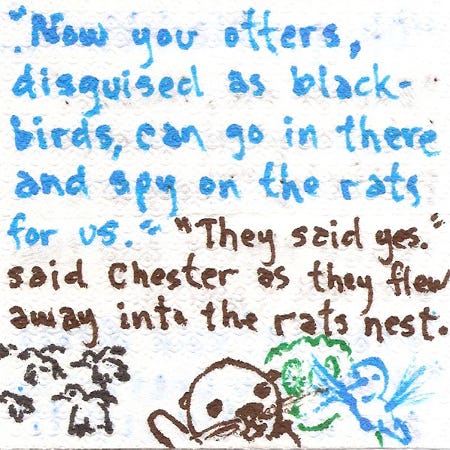 "Now you otters,
disguised as black-
birds, can go in there
and spy on the rats
for us." "They said yes."
said Chester as they flew
away into the rats nest.